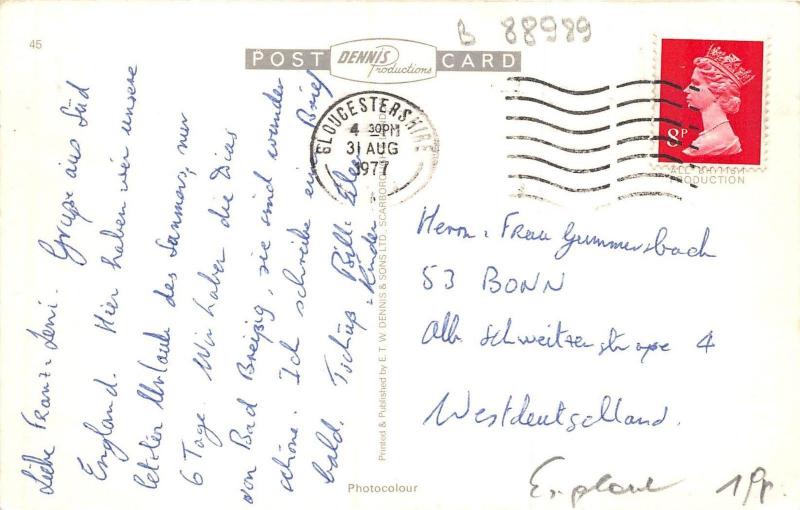 45
B 88989
POST DENNIS Productions CARD
GLOUCESTERSHIRE
4 30PM
31 AUG
1977
8P
ALL BRITISH
PRODUCTION
Liebe Franz u. Leni. Grüße aus Süd
England. Hier haben wir unsere
letzter Urlaub des Sommers, nur
6 Tage. Wir haben die Dias
von Bad Breisig, sie sind wunder
schöne. Ich schreibe ein Brief
bald. Tschüß Bill
+ Kinder
Printed & Published by E. T. W. DENNIS & SONS LTD. SCARBOROUGH
Herrn u. Frau Gummersbach
53 BONN
Alb. Schweitzerstraße 4
Westdeutschland.
Photocolour
England 1Pf.